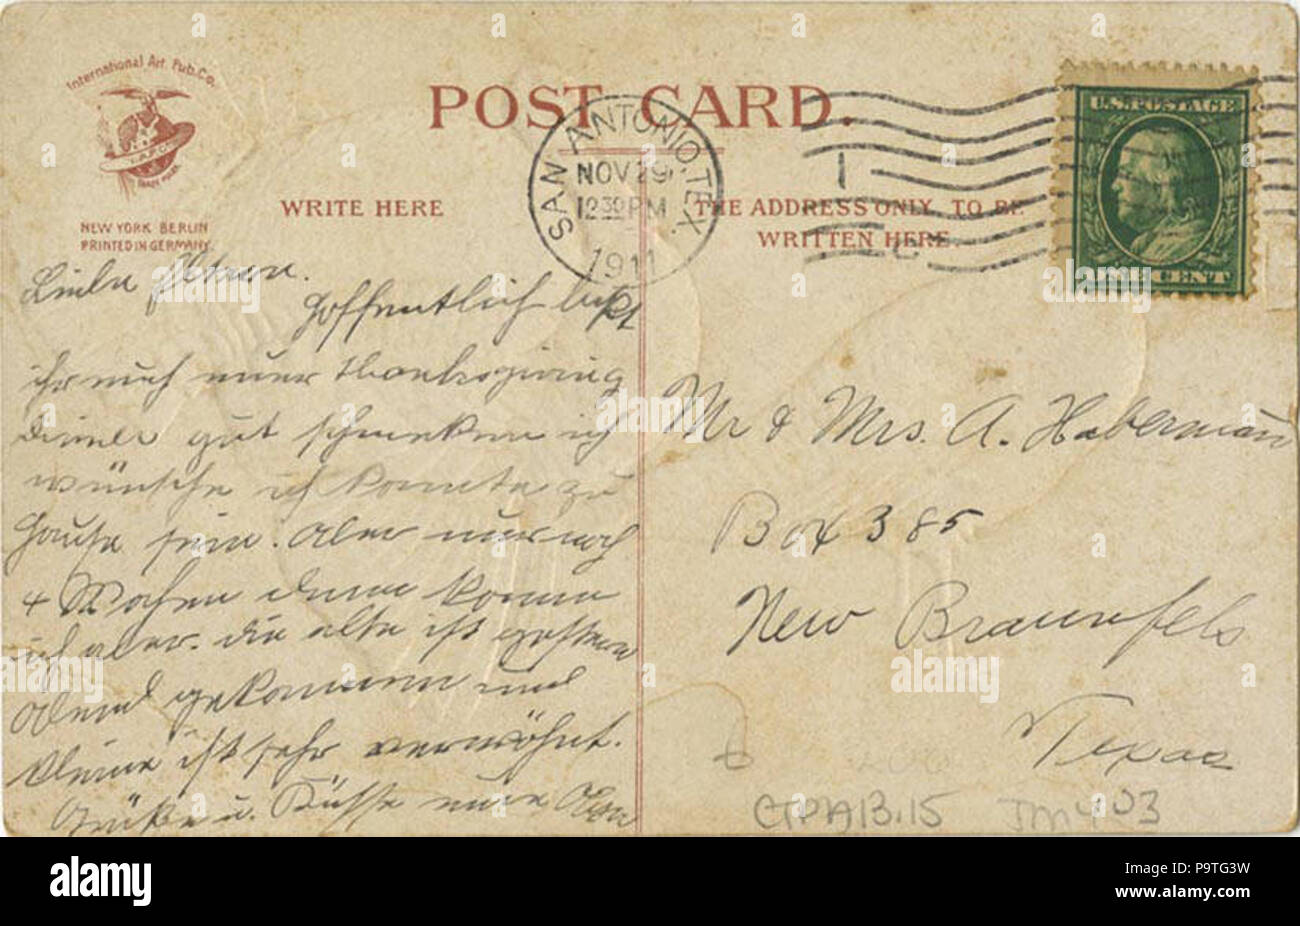 International Art Pub. Co.
POST CARD.
SAN ANTONIO, TEX.
NOV 29
12 30 PM
1911
U.S. POSTAGE
ONE CENT
WRITE HERE
THE ADDRESS ONLY TO BE
WRITTEN HERE
NEW YORK BERLIN
PRINTED IN GERMANY.
Liebe Eltern.
Hoffentlich
ihr euch euer Thanksgiving
Dinner gut schmecken ich
wünsche ich konnte zu
Hause sein. Aber nur noch
4 Wochen dann komm
ich aber. Die alte ist gestern
Abend gekommen und
Kleine ist sehr verwöhnt.
Grüße u. Küsse eure
Mr & Mrs. A. Habermann
Box 385
New Braunfels
Texas
CTPA13.15
alamy
Image ID: P9TG3W
www.alamy.com